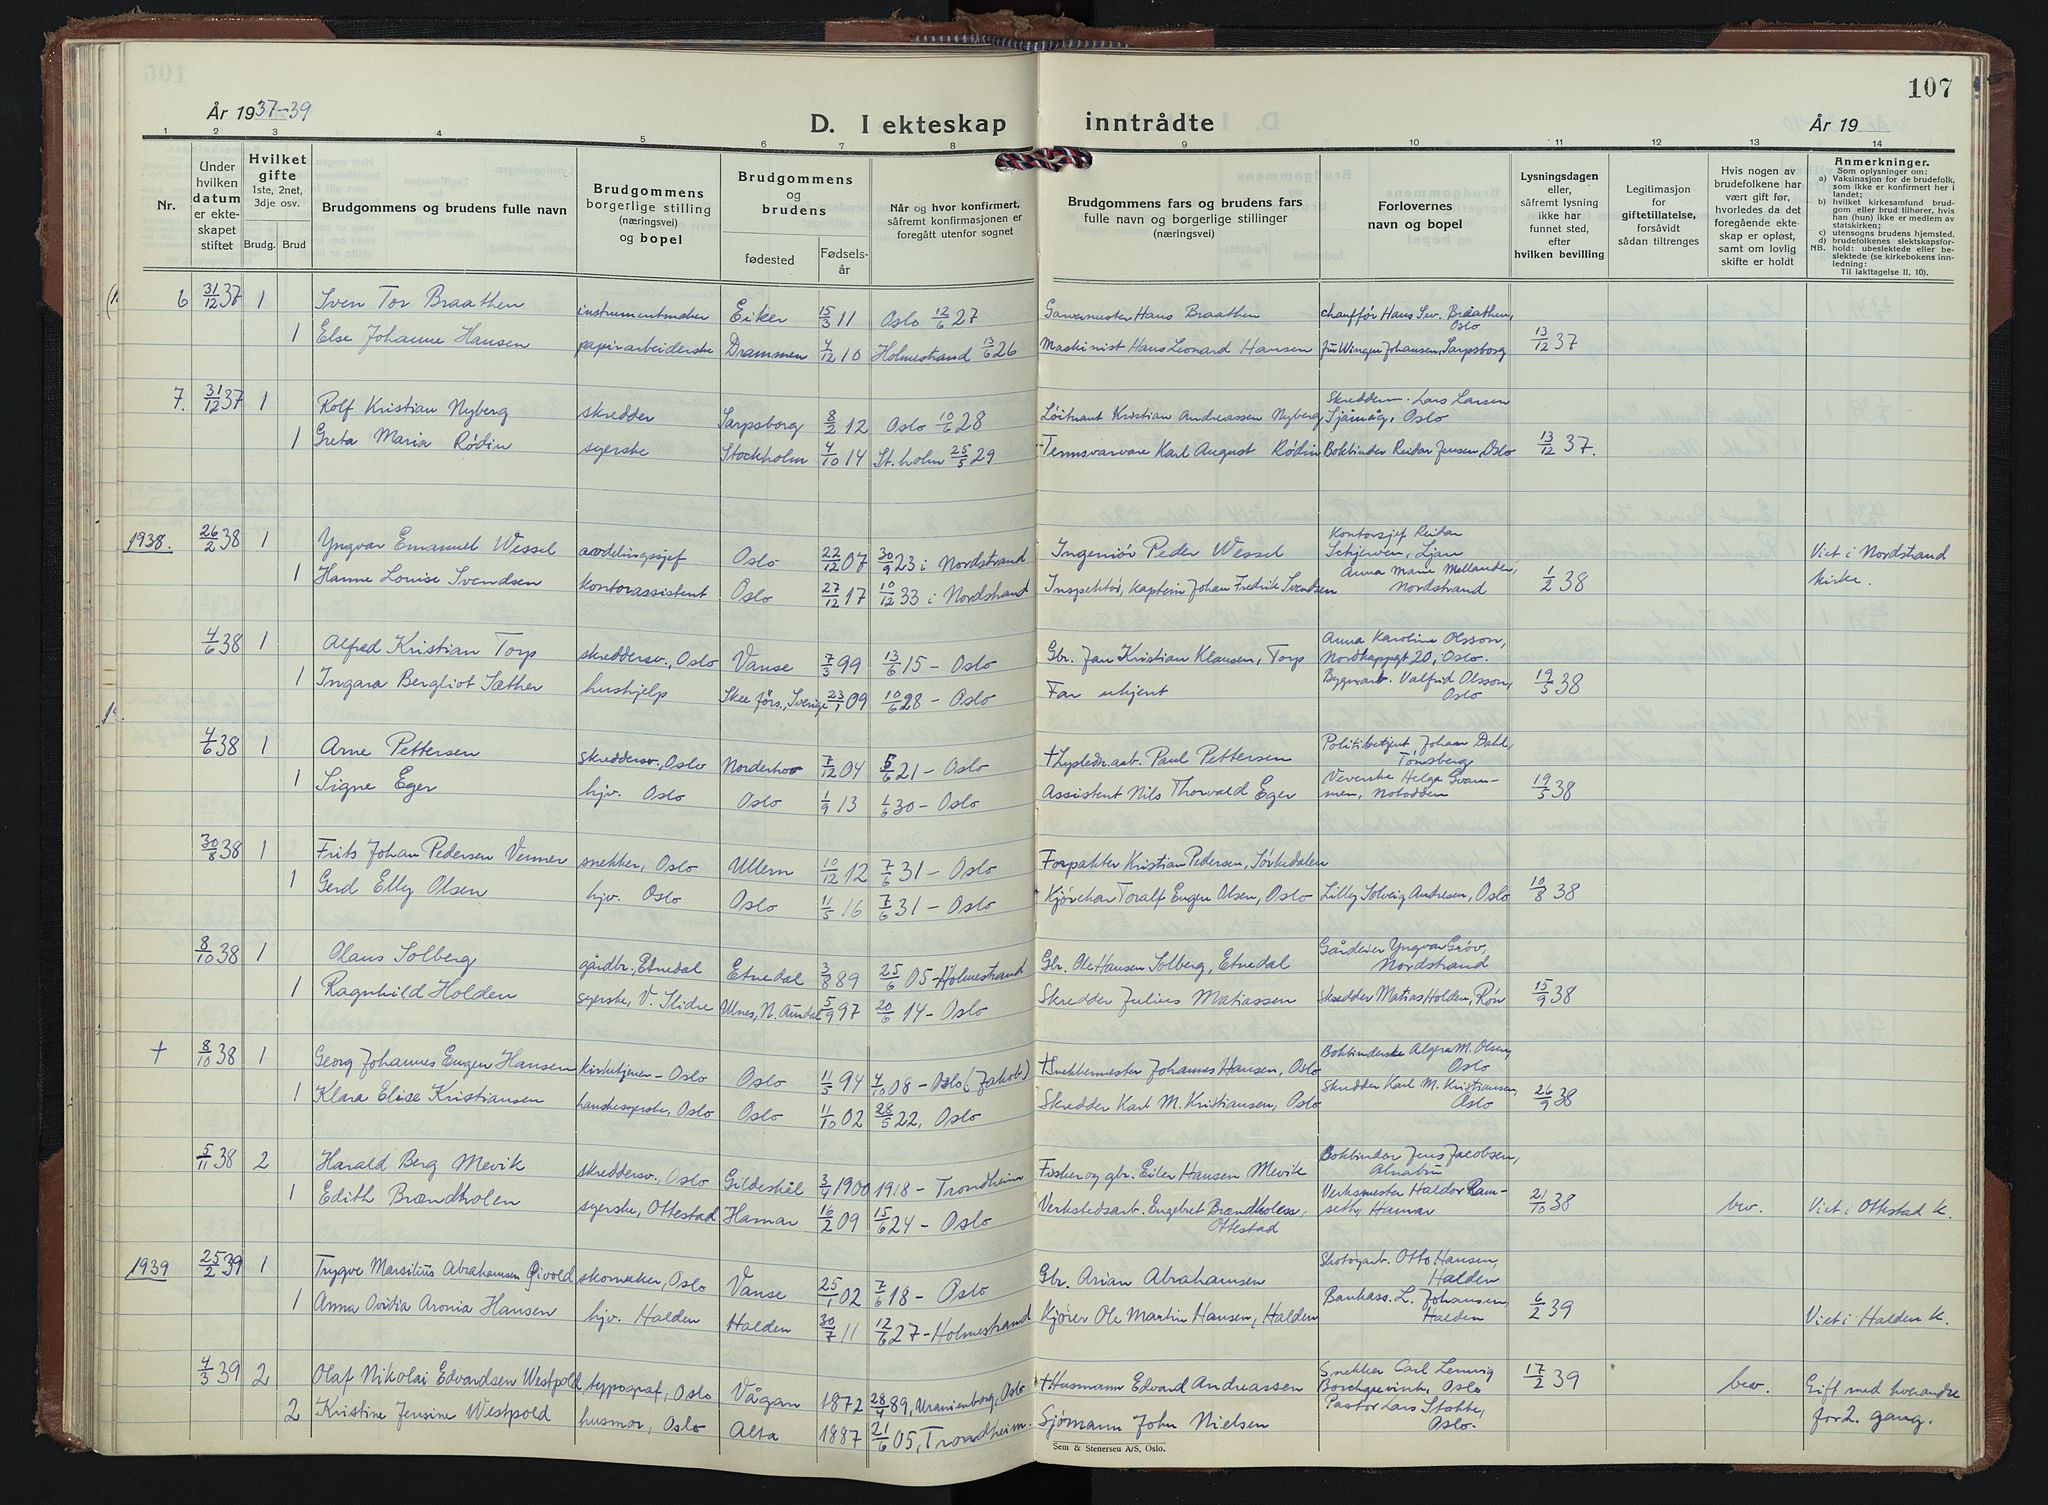 107
År 1937-39
D. I ekteskap inntrådte
År 19
1 2 3 4 5 6 7 8 9 10 11 12 13 14
Nr.
Under hvilken datum er ekteskapet stiftet
Hvilket gifte 1ste, 2net, 3dje osv.
Brudg. Brud
Brudgommens og brudens fulle navn
Brudgommens borgerlige stilling (næringsvei) og bopel
Brudgommens og brudens
fødested Fødselsår
Når og hvor konfirmert, såfremt konfirmasjonen er foregått utenfor sognet
Brudgommens fars og brudens fars fulle navn og borgerlige stillinger (næringsvei)
Forlovernes navn og bopel
Lysningsdagen eller, såfremt lysning ikke har funnet sted, efter hvilken bevilling
Legitimasjon for giftetillatelse, forsåvidt sådan tiltrenges
Hvis nogen av brudefolkene har vært gift før, hvorledes da det foregående ekteskap er opløst, samt om lovlig skifte er holdt
Anmerkninger.
Som oplysninger om:
a) Vaksinasjon for de brudefolk, som ikke er konfirmert her i landet;
b) hvilket kirkesamfund brudgom eller brud tilhører, hvis han (hun) ikke er medlem av statskirken;
c) utensogns brudens hjemsted.
d) brudefolkenes slektskapsforhold: ubeslektede eller beslektede (se kirkebokens innledning:
NB.
Til iakttagelse II. 10).
6 31/12 37 1 Sven Tor Braathen instrumentmaker Eiker 15/3 11 Oslo 12/6 27 Garvermester Hans Braathen chauffør Hans Sv. Braathen, Oslo
1 Else Johanne Hansen papirarbeiderske Drammen 4/12 10 Holmestrand 13/6 26 Maskinist Hans Leonard Hansen Wingen Johansen, Sarpsborg 13/12 37
7. 31/12 37 1 Rolf Kristian Nyberg skredder Sarpsborg 8/2 12 Oslo 10/6 28 Løitnant Kristian Andreassen Nyberg Skredderm. Lars Larsen Sjåmåg, Oslo
1 Greta Maria Rødin syerske Stockholm 4/10 14 St.holm 25/5 29 Karl August Rødin Bokbinder Reidar Jensen, Oslo 13/12 37.
1938. 26/2 38 1 Yngvar Emanuel Wessel avdelingssjef Oslo 22/12 07 30/9 23 i Nordstrand Ingeniør Peder Wessel Kontorsjef Reidar Schjerven, Ljan Viet i Nordstrand
1 Hanne Louise Svendsen kontorassistent Oslo 27/12 17 10/12 33 i Nordstrand Inspektør, kaptein Johan Fredrik Svendsen Anna Marie Mellander, Nordstrand 1/2 38 kirke.
4/6 38 1 Alfred Kristian Torp skreddersv., Oslo Vanse 7/3 99 13/6 15 - Oslo Gbr. Jan Kristian Klausen, Torp Anna Karoline Olsson, Nordkappgt 20, Oslo.
1 Ingara Bergliot Sæther hushjelp Skee förs., Sverige 23/1 09 10/6 28 - Oslo Far ukjent Bygnarb. Valfrid Olsson, Oslo 19/5 38
4/6 38 1 Arne Pettersen skreddersv., Oslo Norderhov 7/12 04 5/6 21 - Oslo † Paul Pettersen Politibetjent Johan Dahl, Tønsberg
1 Signe Eger hjv. Oslo Oslo 1/9 13 1/6 30 - Oslo Assistent Nils Thorvald Eger Veverske Helga Svammen, Notodden 19/5 38
30/8 38 1 Frits Johan Pedersen Venner snekker, Oslo Ullern 10/12 12 7/6 31 - Oslo Forpakter Kristian Pedersen, Sørkedalen
1 Gerd Elly Olsen hjv. Oslo Oslo 11/5 16 7/6 31 - Oslo Toralf Eugen Olsen, Oslo Lilly Solveig Andresen, Oslo 10/8 38
8/10 38 1 Olaus Solberg gårdbr., Etnedal Etnedal 3/8 89 25/6 05 - Holmestrand Gbr. Ole Hansen Solberg, Etnedal Gårdeier Yngvar Grøv, Nordstrand
1 Ragnhild Holden syerske, V. Slidre Ulnes, N. Aurdal 5/9 97 20/6 14 - Oslo Skredder Julius Matiassen Skredder Matias Holden, Røn 15/9 38
† 8/10 38 1 Georg Johannes Eugen Hansen kirketjener - Oslo Oslo 11/5 94 4/10 08 - Oslo (Jakob) † Snekkermester Johannes Hansen, Oslo Bokbinderske Algera M. Olsen, Oslo
1 Klara Elise Kristiansen hanskesyerske, Oslo Oslo 11/10 02 28/5 22, Oslo Skredder Karl M. Kristiansen, Oslo Skredder Karl M. Kristiansen, Oslo 26/9 38
5/11 38 2 Harald Berg Mevik skreddersv., Oslo Gildeskål 3/4 1900 1918 - Trondheim Fisker og gbr. Eiler Hansen Mevik Bokbinder Jens Jacobsen, Alnabru
1 Edith Brændholen syerske, Ottestad Hamar 16/2 09 15/6 24 - Oslo Verkstedsarb. Engebret Brændholen, Ottestad Verksmester Haldor Ramseth, Hamar 21/10 38 bev. Viet i Ottestad k.
1939 25/2 39 1 Trygve Marsilius Abrahamsen Qvivold skomaker, Oslo Vanse 25/1 02 7/6 18 - Oslo Gbr. Arian Abrahamsen Skotøyarb. Otto Hansen, Halden
1 Anna Ovidia Aronia Hansen hjv. Halden Halden 30/7 11 12/6 27 - Holmestrand Kjører Ole Martin Hansen, Halden Bankass. L. Johansen, Halden 6/2 39 Viet i Halden k.
4/3 39 2 Olaf Nikolai Edvardsen Westpold, typograf, Oslo Vågan 1872 28/4 89, Uranienborg, Oslo † Husmann Edvard Andreassen Snekker Carl Lemvig Borchgrevink, Oslo 17/2 39 bev. Gift med hverandre
2 Kristine Jensine Westpold husmor, Oslo Alta 1887 21/6 05, Trondheim. Sjømann John Nielsen Pastor Lars Stokke, Oslo. for 2. gang.
Sem & Stenersen A/S, Oslo.